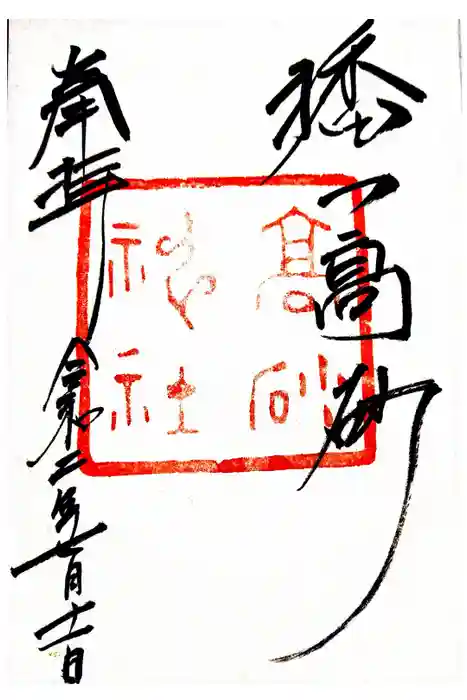 播
高砂
高砂
神社
奉拝
令和二年七月十一日